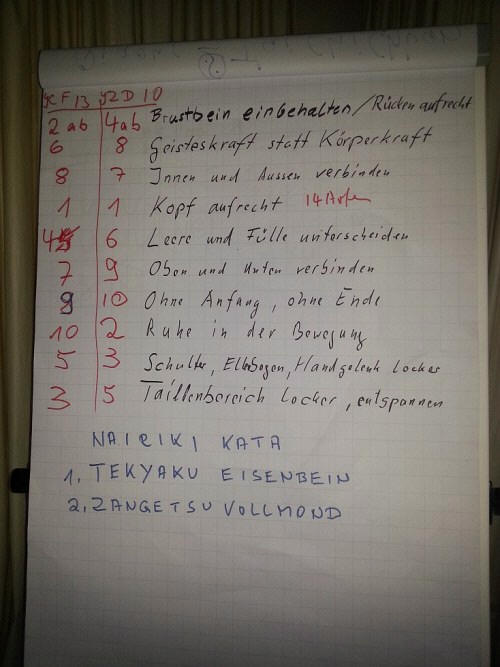 YCF 13 YZD 10
2 ab 4 ab Brustbein einbehalten / Rücken aufrecht
6 8 Geisteskraft statt Körperkraft
8 7 Innen und Aussen verbinden
1 1 Kopf aufrecht 14
4 6 Leere und Fülle unterscheiden
7 9 Oben und Unten verbinden
9 10 Ohne Anfang, ohne Ende
10 2 Ruhe in der Bewegung
5 3 Schulter, Ellbogen, Handgelenk locker
3 5 Taillenbereich locker, entspannen
NAIRIKI KATA
1. TEKYAKU EISENBEIN
2. ZANGETSU VOLLMOND